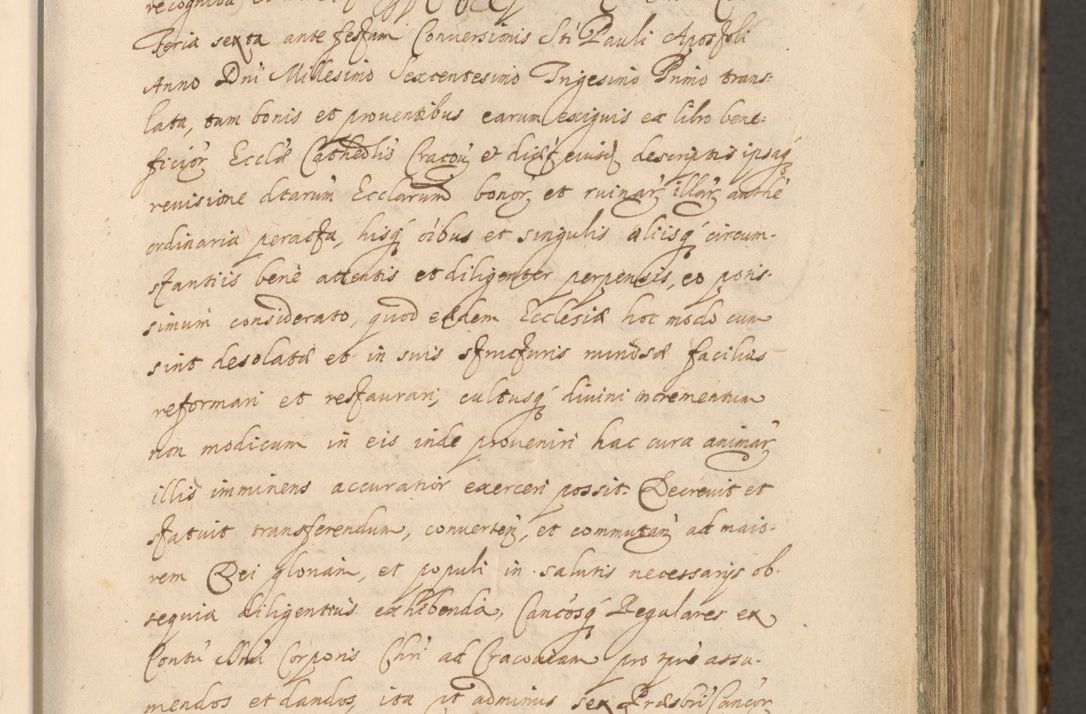 Feria sexta ante festum Conversionis Sti Pauli Apostoli
Anno Dni Millesimo Sexcentesimo Trigesimo Primo trans-
lata, tum bonis et proventibus earum exiguis ex libro bene-
ficior Ecclæ Cathedlis Cracou et descriptis ipsiq
revisione dtarum Ecclarum bonor et ruinar illar anthe
ordinaria peracta, hisq oibus et singulis aliisq circum-
stantiis bene attentis et diligenter perpensis, eo potis-
simum considerato, quod eædem Ecclesiæ hoc modo cum
sint desolatæ et in suis structuris minusæ facilius
reformari et restaurari, cultusq divini incrementum
non modicum in eis inde proveniri hac cura animar
illis imminens accuratior exerceri possit. Decrevit et
statuit transferendum, converten, et commutan ad maio-
rem Dei gloriam, et populi in salutis necessarijs ob-
sequia diligentius exhibenda, Cancosq Regulares ex
Contu Mnii Corporis Chri ad Cracoviam pro tpre assu-
mendos et dandos, ita ut adminus sex Præsbri Cancor